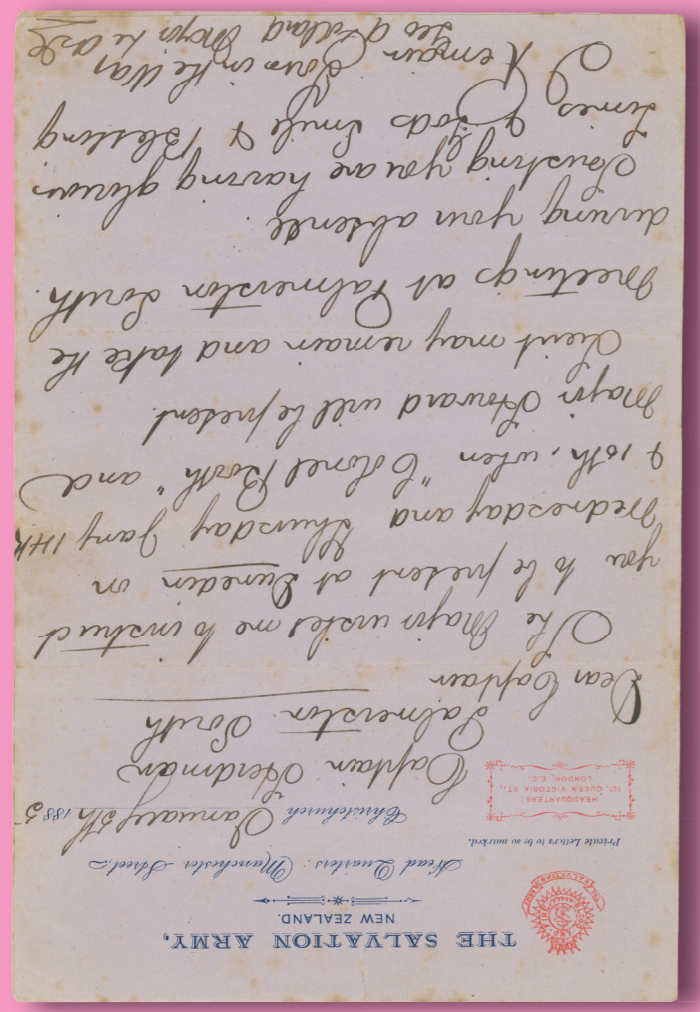 THE SALVATION ARMY,
NEW ZEALAND.
Head Quarters: Manchester Street.
Private Letters to be so marked.
HEADQUARTERS:
101, QUEEN VICTORIA ST.,
LONDON, E.C.
Christchurch January 5th 1885
Captain Herdman
Palmerston South
Dear Captain
The Major wishes me to instruct
you to be present at Dunedin on
Wednesday and Thursday Jany 14th
& 15th, when "Colonel Booth" and
Major Howard will be present.
Lieut may remain and take the
meetings at Palmerston South.
during your absence
Trusting you are having glorious
times & Gods Smile & Blessing
I Remain Yours in the War
Geo A